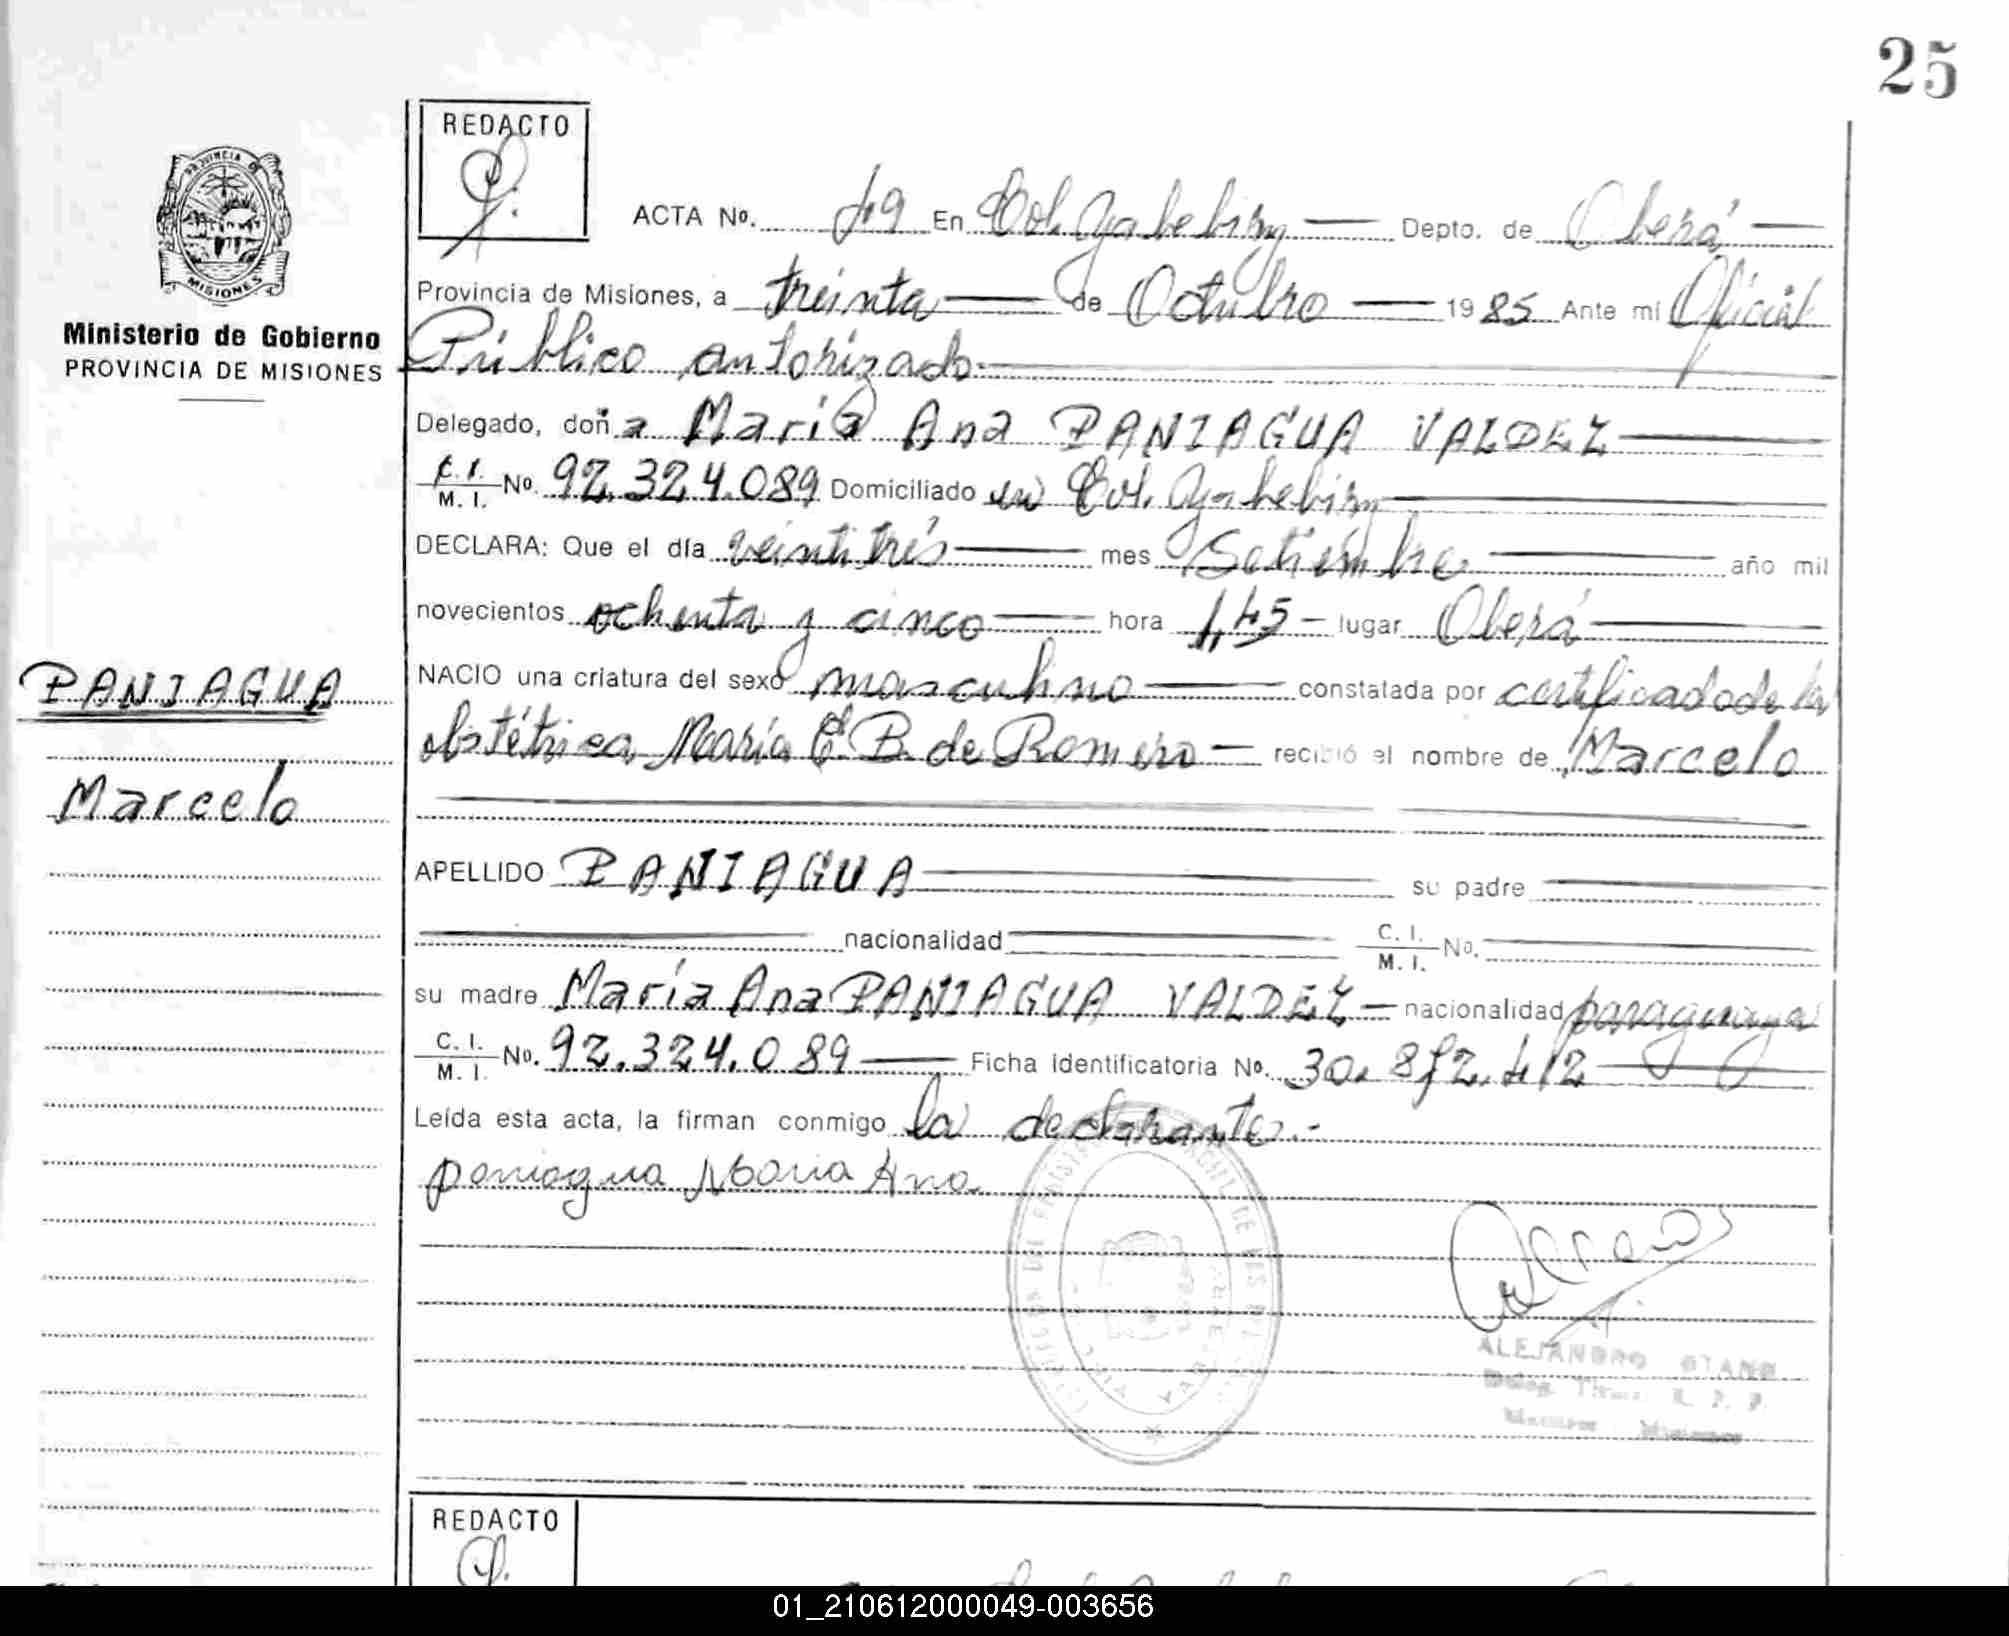 25
REDACTO
PROVINCIA DE
MISIONES
ACTA Nº. 49 En Col. Yabebiry Depto. de Oberá
Ministerio de Gobierno
PROVINCIA DE MISIONES
Provincia de Misiones, a treinta de Octubre 1985 Ante mí Oficial
Público autorizado
Delegado, doña María Ana PANIAGUA VALDEZ
C. I.
M. I. Nº. 92.324.089 Domiciliado en Col. Yabebiry
DECLARA: Que el día veintitrés mes Setiembre año mil
novecientos ochenta y cinco hora 1,45 lugar Oberá
PANIAGUA
NACIO una criatura del sexo masculino constatada por certificado de la
obstétrica María E. B. de Romero recibió el nombre de Marcelo
Marcelo
APELLIDO PANIAGUA su padre
nacionalidad C. I.
M. I. No.
su madre María Ana PANIAGUA VALDEZ nacionalidad paraguaya
C. I.
M. I. Nº. 92.324.089 Ficha Identificatoria Nº. 30.872.412
Leída esta acta, la firman conmigo la declarante.-
paniagua Maria Ana
ALEJANDRO
REDACTO
01_210612000049-003656